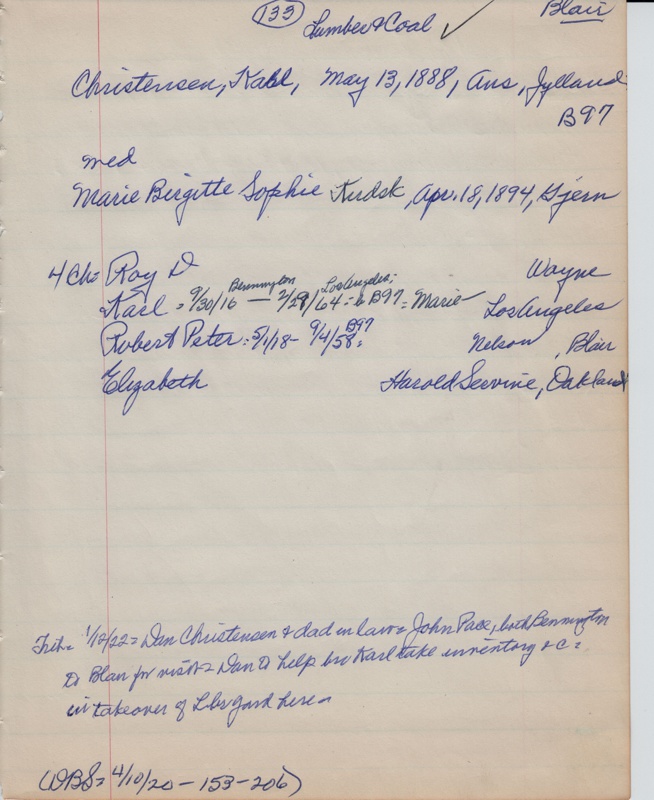 133
Lumber & Coal ✓
Blair
Christensen, Karl, May 13, 1888, Ans, Jylland
B97
med
Marie Birgitte Sophie Kudsk, Apr. 18, 1894, Gjern
4 Ch= Roy D Wayne
Bennington Los Angeles;
Karl = 9/30/16 — 2/29/64 = b B97 = Marie Los Angeles
B97
Robert Peter: 5/1/18 - 9/4/58 = Nelson, Blair
Elizabeth Harold , Oakland
Trib = 1/12/22 = Dan Christensen & dad in law = John Pace, both Bennington
to Blair for visit = Dan to help bro Karl take inventory & c =
in takeover of Lbr yard here =
(DBS = 4/10/20 - 153 - 206)